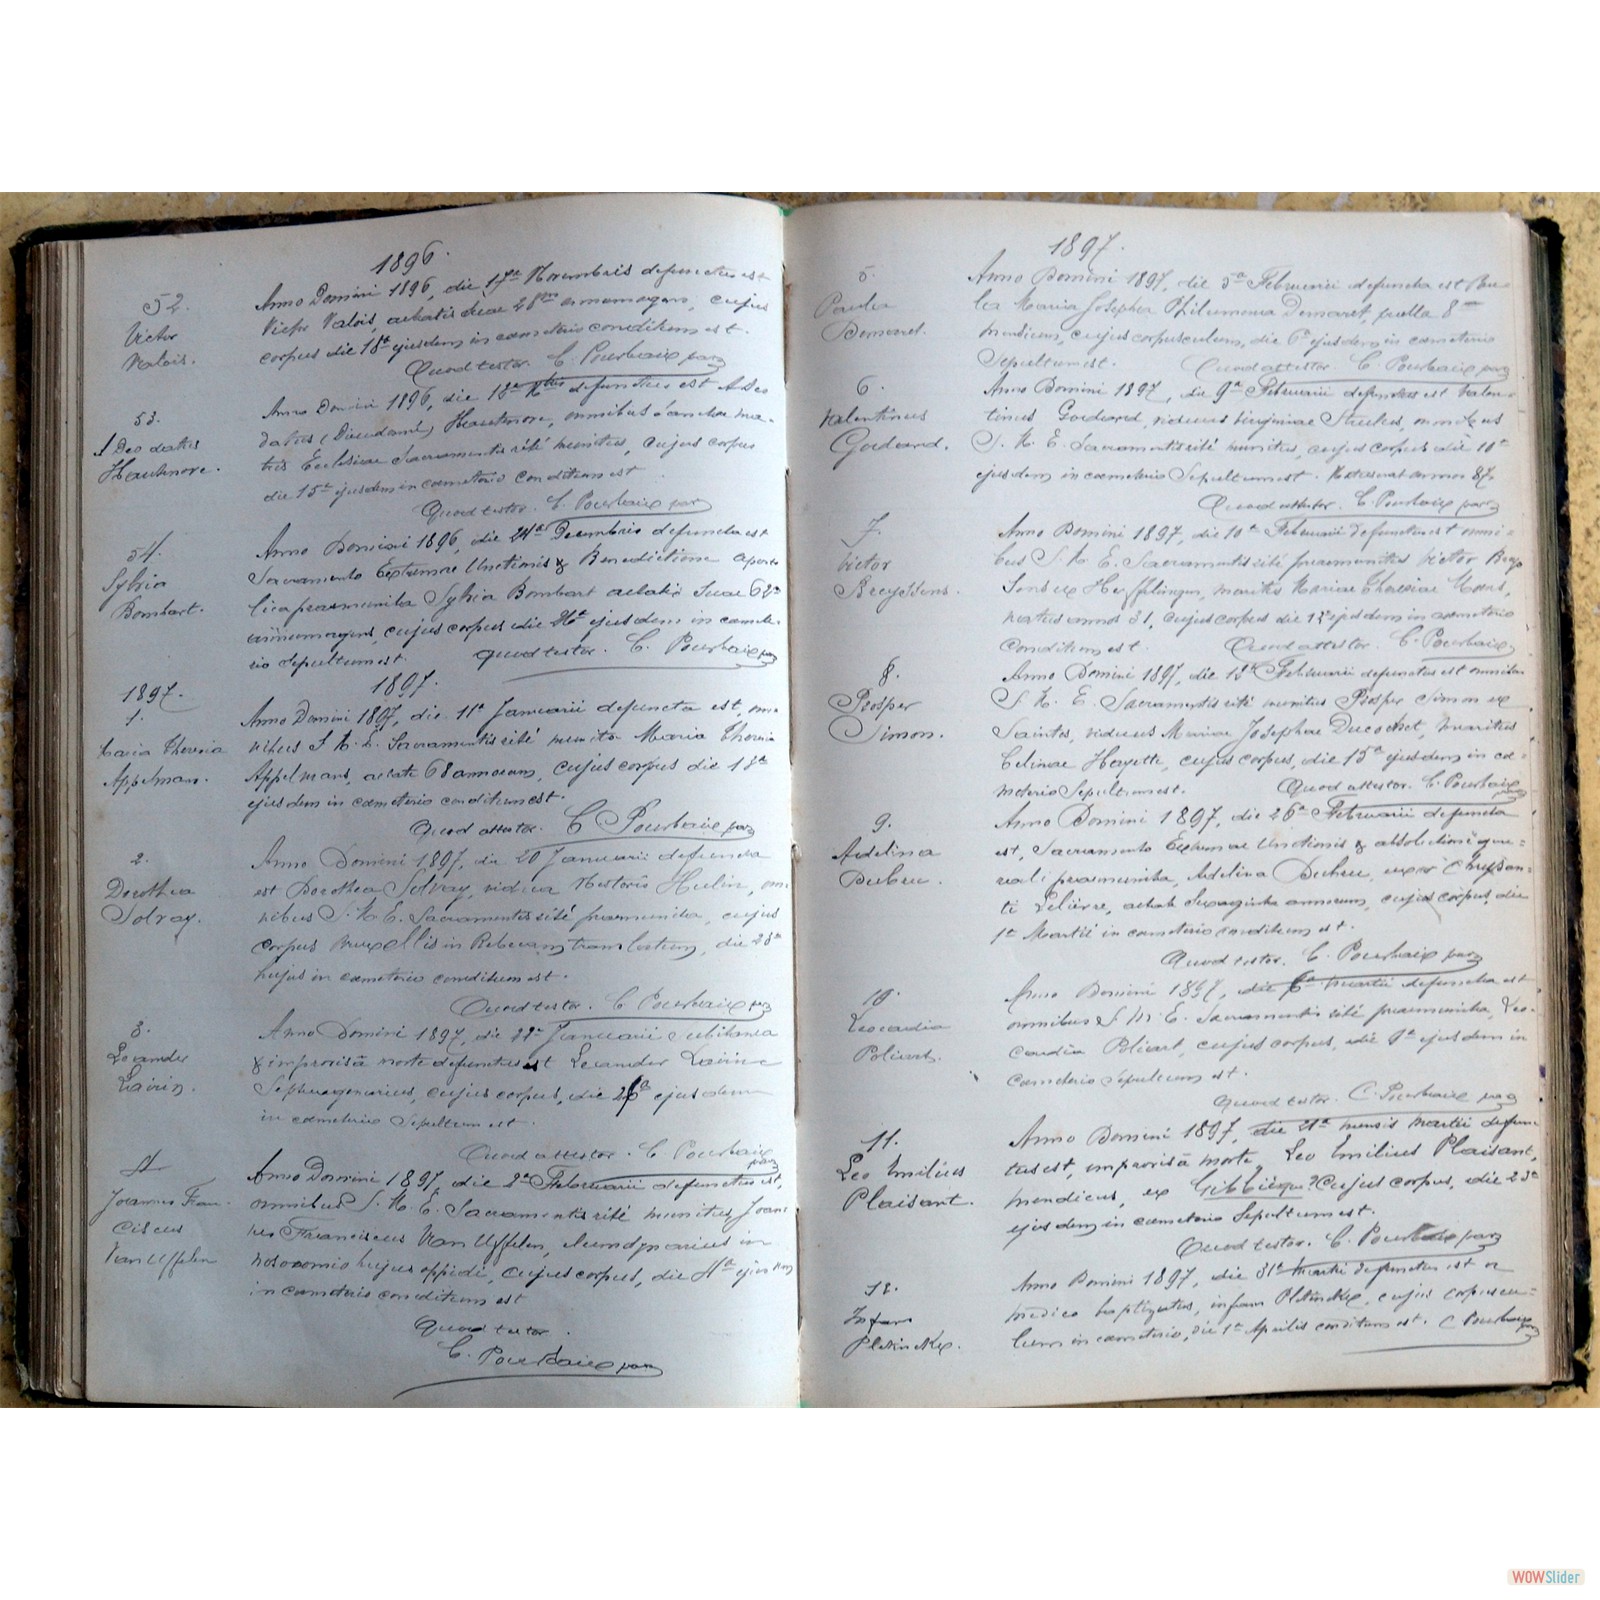 1896.
52.
Victor
Valois.
Anno Domini 1896, die 17a Novembris defunctus est
Victor Valois, aetatis suae 28um annum agens, cujus
corpus die 18a ejusdem in coemeterio conditum est.
Quod testor. C. Pourbaix
53.
Deodatus
Hautenove.
Anno Domini 1896, die defunctus est Adeo
datus (Dieudonné) Hautenove, omnibus sanctae ma-
tris Ecclesiae Sacramentis rité munitus, cujus corpus
die 15a ejusdem in coemeterio conditum est
Quod testor. C. Pourbaix
54.
Sylvia
Bombart.
Anno Domini 1896, die 24a Decembris defuncta est
Sacramento Extremae Unctionis & Benedictione aposto
lica praemunita Sylvia Bombart aetatis suae 62um
annum agens, cujus corpus die 26a ejusdem in coemete-
rio sepultum est. Quod testor. C. Pourbaix
1897.
1897.
1.
Maria Theresia
Appelmans.
Anno Domini 1897, die 11a Januarii defuncta est, om-
nibus S. M. E. Sacramentis rité munita Maria Theresia
Appelmans, aetate 68 annorum, cujus corpus die 13a
ejusdem in coemeterio conditum est.
Quod attestor. C Pourbaix
2.
Dorothea
Solvay.
Anno Domini 1897, die 20 Januarii defuncta
est Dorothea Solvay, vidua Nestoris Hulin, om
nibus S. M. E. Sacramentis rité praemunita, cujus
corpus Bruxellis in Rebecam translatum, die 23a
hujus in coemeterio conditum est.
Quod testor. C Pourbaix
3.
Lexander
Anno Domini 1897, die 22a Januarii subitanea
& improvisâ morte defunctus est Lexander
Septuagenarius, cujus corpus, die ejusdem
in coemeterio Sepultum est.
Quod attestor. C. Pourbaix
4
Joannes Fran
ciscus
Van Uffelen
Anno Domini 1897, die 2a Februarii defunctus est,
omnibus S. M. E. Sacramentis rité munitus, Joan
nes Franciscus Van Uffelen, in
nosocomio hujus oppidi, cujus corpus, die 4a ejusdem
in coemeterio conditum est
Quod testor.
C. Pourbaix
1897.
5.
Paula
Demaret.
Anno Domini 1897, die 5a Februarii defuncta est Pau-
la Maria Josepha Philumena Demaret, puella 8um
mensium, cujus corpusculum, die ejusdem in coemeterio
Sepultum est. Quod attestor. C. Pourbaix
6.
Valentinus
Godeard.
Anno Domini 1897, die 9a Februarii defunctus est Valen-
tinus Godeard, viduus Virginiae omnibus
S. M. E. Sacramentis rité munitus, cujus corpus die 10a
ejusdem in coemeterio Sepultum est. annos 87.
Quod attestor. C. Pourbaix
7.
Victor
Anno Domini 1897, die 10a Februarii defunctus est omni-
bus S. M. E. Sacramentis rité praemunitus Victor
ex Herffelingen, maritus Mariae Theresiae
natus annos 31, cujus corpus die ejusdem in coemeterio
conditum est. Quod attestor. C. Pourbaix
8.
Prosper
Simon.
Anno Domini 1897, die Februarii defunctus est omnibus
S. M. E. Sacramentis rité munitus Prosper Simon ex
Saintes, viduus Mariae Josephae maritus
Celinae Hayette, cujus corpus, die 15a ejusdem in coe-
meterio Sepultum est. Quod attestor. C. Pourbaix
9.
Adelina
Dubru.
Anno Domini 1897, die 26a Februarii defuncta
est, Sacramento Extremae Unctionis & absolutione gene-
rali praemunita, Adelina Dubru, uxor Chrysan-
ti Lelièvre, aetate Sexaginta annorum, cujus corpus, die
1a Martii in coemeterio conditum est.
Quod testor. C. Pourbaix
10.
Leocadia
Polivart.
Anno Domini 1897, die 6a Martii defuncta est
omnibus S. M. E. Sacramentis rité praemunita, Leo-
cadia Polivart, cujus corpus, die 9a ejusdem in
coemeterio sepultum est.
Quod testor. C. Pourbaix
11.
Leo Emilius
Plaisant.
Anno Domini 1897, die 21a mensis martii defunc
tus est, improvisâ morte, Leo Emilius Plaisant,
mendicus, ex Gibbiecque? Cujus corpus, die 23a
ejusdem in coemeterio Sepultum est.
Quod testor. C. Pourbaix
12.
Infans
Pletinckx.
Anno Domini 1897, die 31a Martii defunctus est a
medico baptizatus, infans Pletinckx, cujus corpuscu-
lum in coemeterio, die 1a Aprilis conditum est. C Pourbaix
WOWSlider